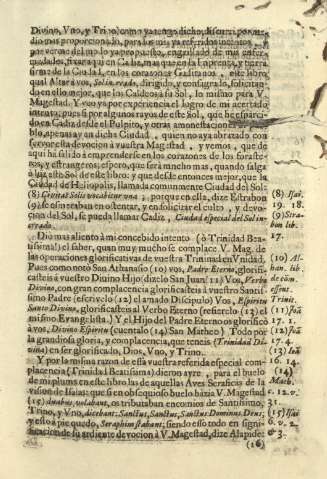 Divino, Vno, y Trino) como ya tengo dicho, discurrí por medio
mas proporcionado, para los mis ya referidos intentos,
por veneno del no lo ya propuesto, engrasado de mis entremedados,
fixar aqui en Cadiz, mas que en la Imprenta, y fuera
firme de la Ciudad, en los corazones Gaditanos, este libro,
qual Altar à vos, Solis reads, dirigido, y consagrado, solicitando
en ello mejor, que los Caldeos à su Sol, lo mismo para V.
Magestad. Y veo ya por experiencia el logro de mi acertado
intento, pues si por algunos rayos de este Sol, que he esparcido
en Cadiz desde el Pulpito, y otras amonestaciones al pueblo,
apenas ay en dicha Ciudad, quien no aya abrazado con
fervor esta devocion à vuestra Magestad, y vemos, que de
aqui ha salido à emprenderse en los corazones de los forasteros,
y estrangeros; espero, que será mucho mas, quando salga
à luz este Sol de este libro: y que desde entonces mejor, que la
Ciudad de Heliopolis, llamada comunmente Ciudad del Sol: (8) Isai.
(8) Civitas Solis vocabitur una, porque en ella, dize Estrabon 19. 18.
(9) se esmeraban en ostentar, y en solicitar el culto, y devocion (9) Strabon
del Sol, se pueda llamar Cadiz, Ciudad especial del Sol increado. lib.
17.
Diò mas aliento à mi concebido intento (ò Trinidad Beatissima)
el saber, quan muy mucho se complace V. Mag. de
las operaciones glorificativas de vuestra Trinidad en Vnidad. (10) Alban.
Pues como noto San Athanasio (10) vos, Padre Eterno, glorificasteis lib.
à vuestro Divino Hijo: dixolo San Juan (11) Vos, Verbo de com.
Divino, con gran complacencia glorificasteis à vuestro Santissimo essent.
Padre (escrivelo (12) el amado Discipulo) Vos, Espiritu Trinit.
Santo Divino, glorificasteis al Verbo Eterno (refierelo (13) el (11) Joã
mismo Evangelista.) Y el Hijo del Padre Eterno os glorificò 17. 1.
à vos, Divino Espiritu (cuentalo (14) San Matheo) Todo por (12) Joã
la grandiosa gloria, y complacencia, que teneis (Trinidad Divina) 17. 4.
en ser glorificado, Dios, Vno, y Trino. (13) Joã
Y por la misma razon de essa vuestra referida especial complacencia 16. 14.
(Trinidad Beatissima) dieron ayre, para el buelo (14)
de mi pluma en este libro las de aquellas Aves Seraficas de la Math.
vision de Isaias: que si en obsequioso buelo hazia V. Magestad c. 12. v.
(15) duabus, volabant, os tributaban encomios de Santissimo, 31.
Trino, y Vno, dicebant: Sanctus, Sanctus, Sanctus Dominus Deus; (15) Isai
y esto à pie quedo, Seraphim stabant; siendo esso todo en significacion 6. v. 2
de su ardiente devocion à V. Magestad, dize Alapide: & 3.
(16)